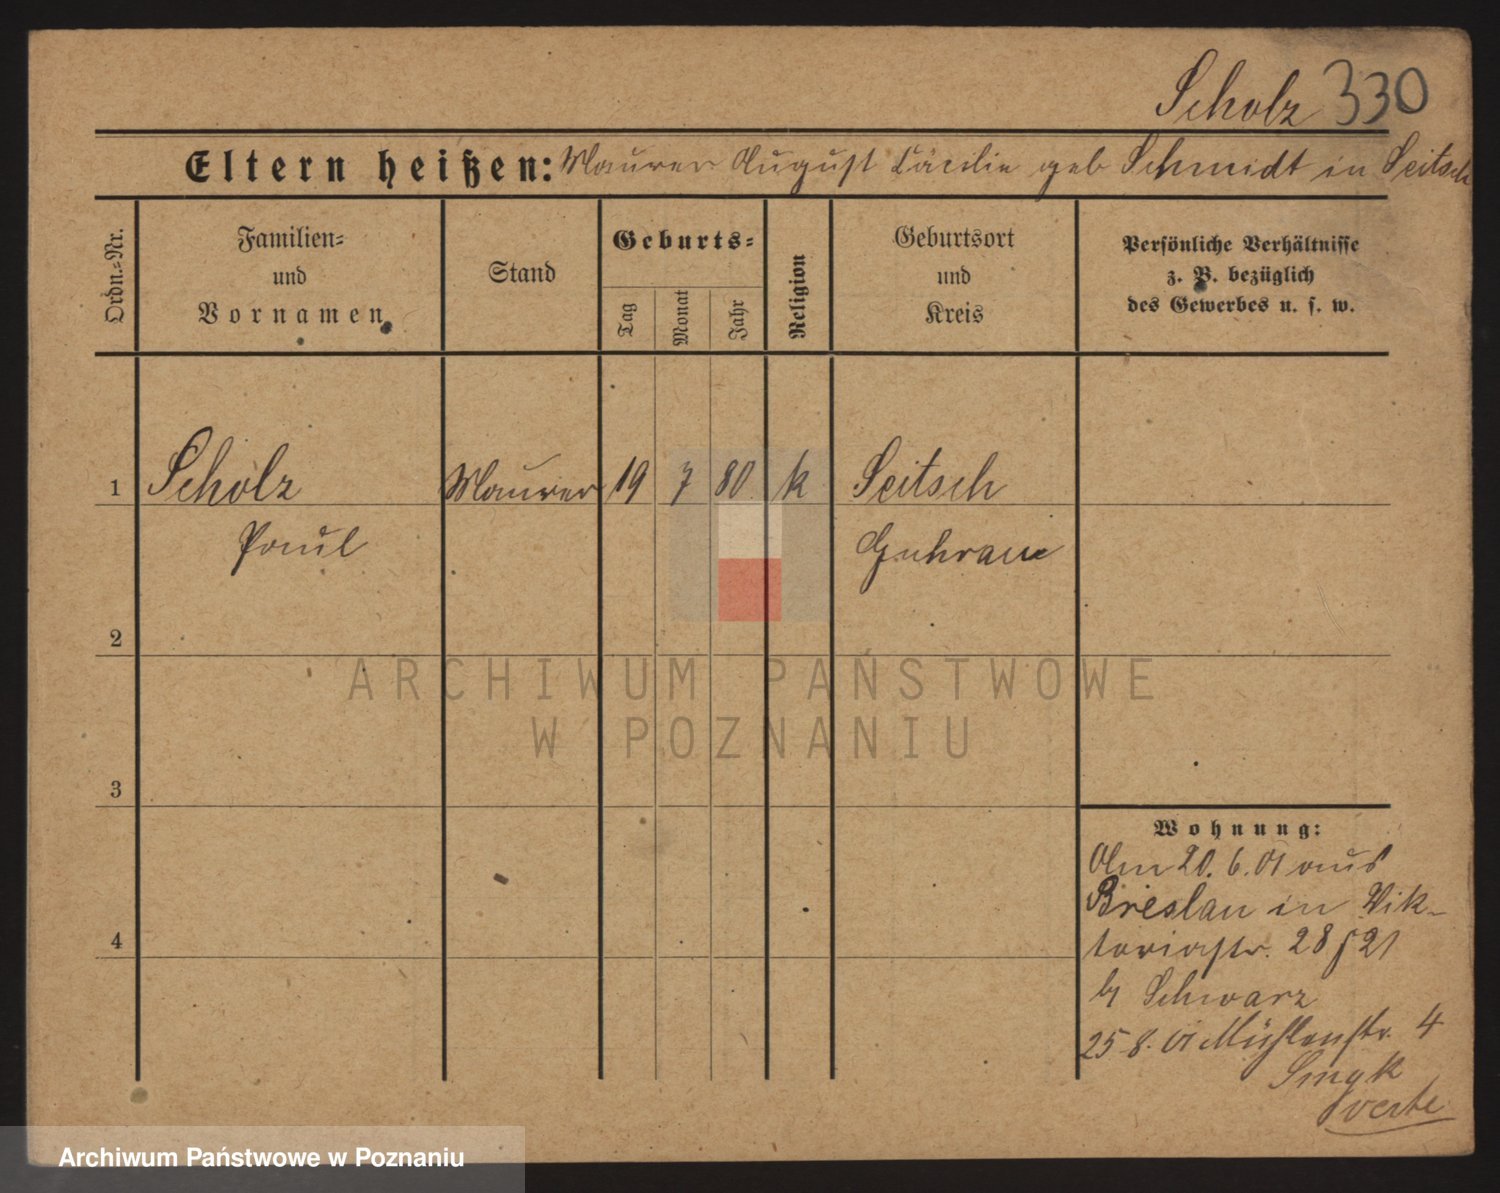 Scholz 330
Eltern heißen: Maurer August Cäcilie geb Schmidt in Seitsch
Ordn.-Nr.
Familien-
und
Vornamen
Stand
Geburts-
Tag
Monat
Jahr
Religion
Geburtsort
und
Kreis
Persönliche Verhältnisse
z. B. bezüglich
des Gewerbes u. s. w.
1 Scholz Maurer 19 7 80 k Seitsch
Paul Guhrau
2
3
4
Wohnung:
Am 20. 6. 01 aus
Breslau in Vik-
toriastr. 28 21
b/ Schwarz
25 8. 01 Mühlenstr. 4
verte
ARCHIWUM PAŃSTWOWE
W POZNANIU
Archiwum Państwowe w Poznaniu